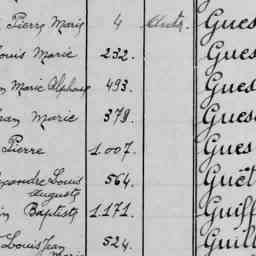 Pierre Marie 4 Gues
Louis Marie 232. Gues
Marie Alphonse 493. Gues
Jean Marie 378. Gues
Pierre 1.007. Gues
Alexandre Louis 564. Guét
Auguste
Baptiste 1.171. Guiff
Louis Jean 524. Guill
Marie